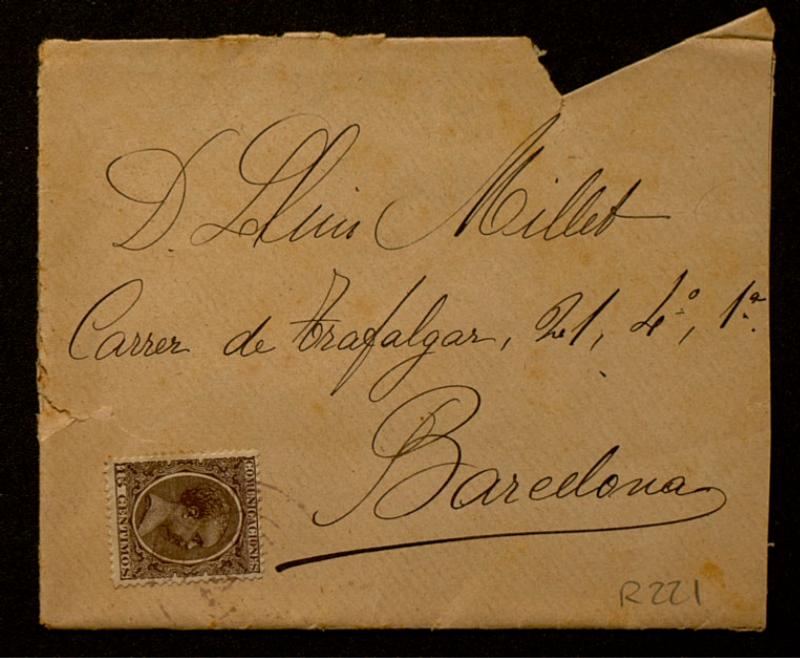 D. Lluis Millet
Carrer de Trafalgar, 21, 4º, 1ª.
Barcelona
COMUNICACIONES
15 CENTIMOS
R221